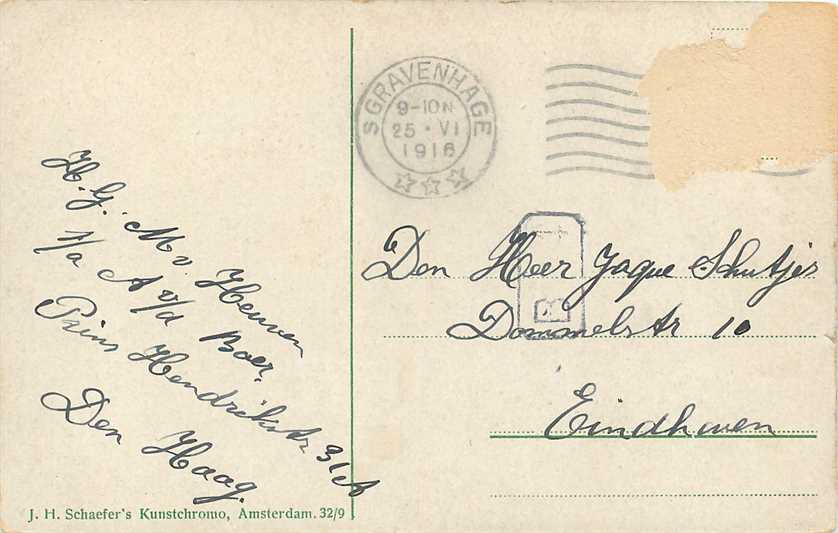 'S GRAVENHAGE
9-10 N
25 · VI
1916
H. G. M. v. Heuven
p/a A v/d Boer.
Prins Hendrikstr 31A
Den Haag.
Den Heer Jaque Schutjes
Dommelstr 10
Eindhoven
J. H. Schaefer's Kunstchromo, Amsterdam. 32/9